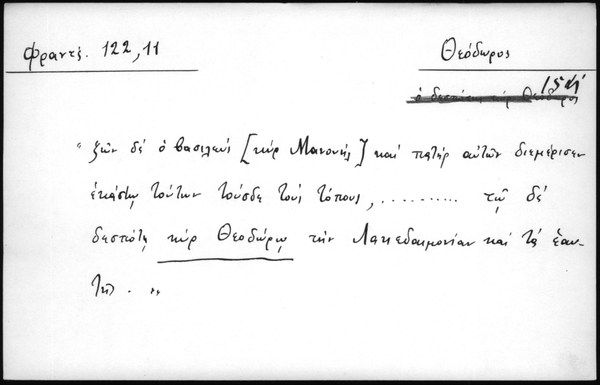 Φραντζ. 122, 11
Θεόδωρος
ὁ δεσπότης κὺρ Θεόδωρος
" ζῶν δὲ ὁ βασιλεὺς [κὺρ Μανουὴλ] καὶ πατὴρ αὐτῶν διεμέρισεν
ἑκάστῳ τούτων τούσδε τοὺς τόπους, .......... τῷ δὲ
δεσπότῃ κὺρ Θεοδώρῳ τὴν Λακεδαιμονίαν καὶ τὰ ἑαυ-
τῆς. "